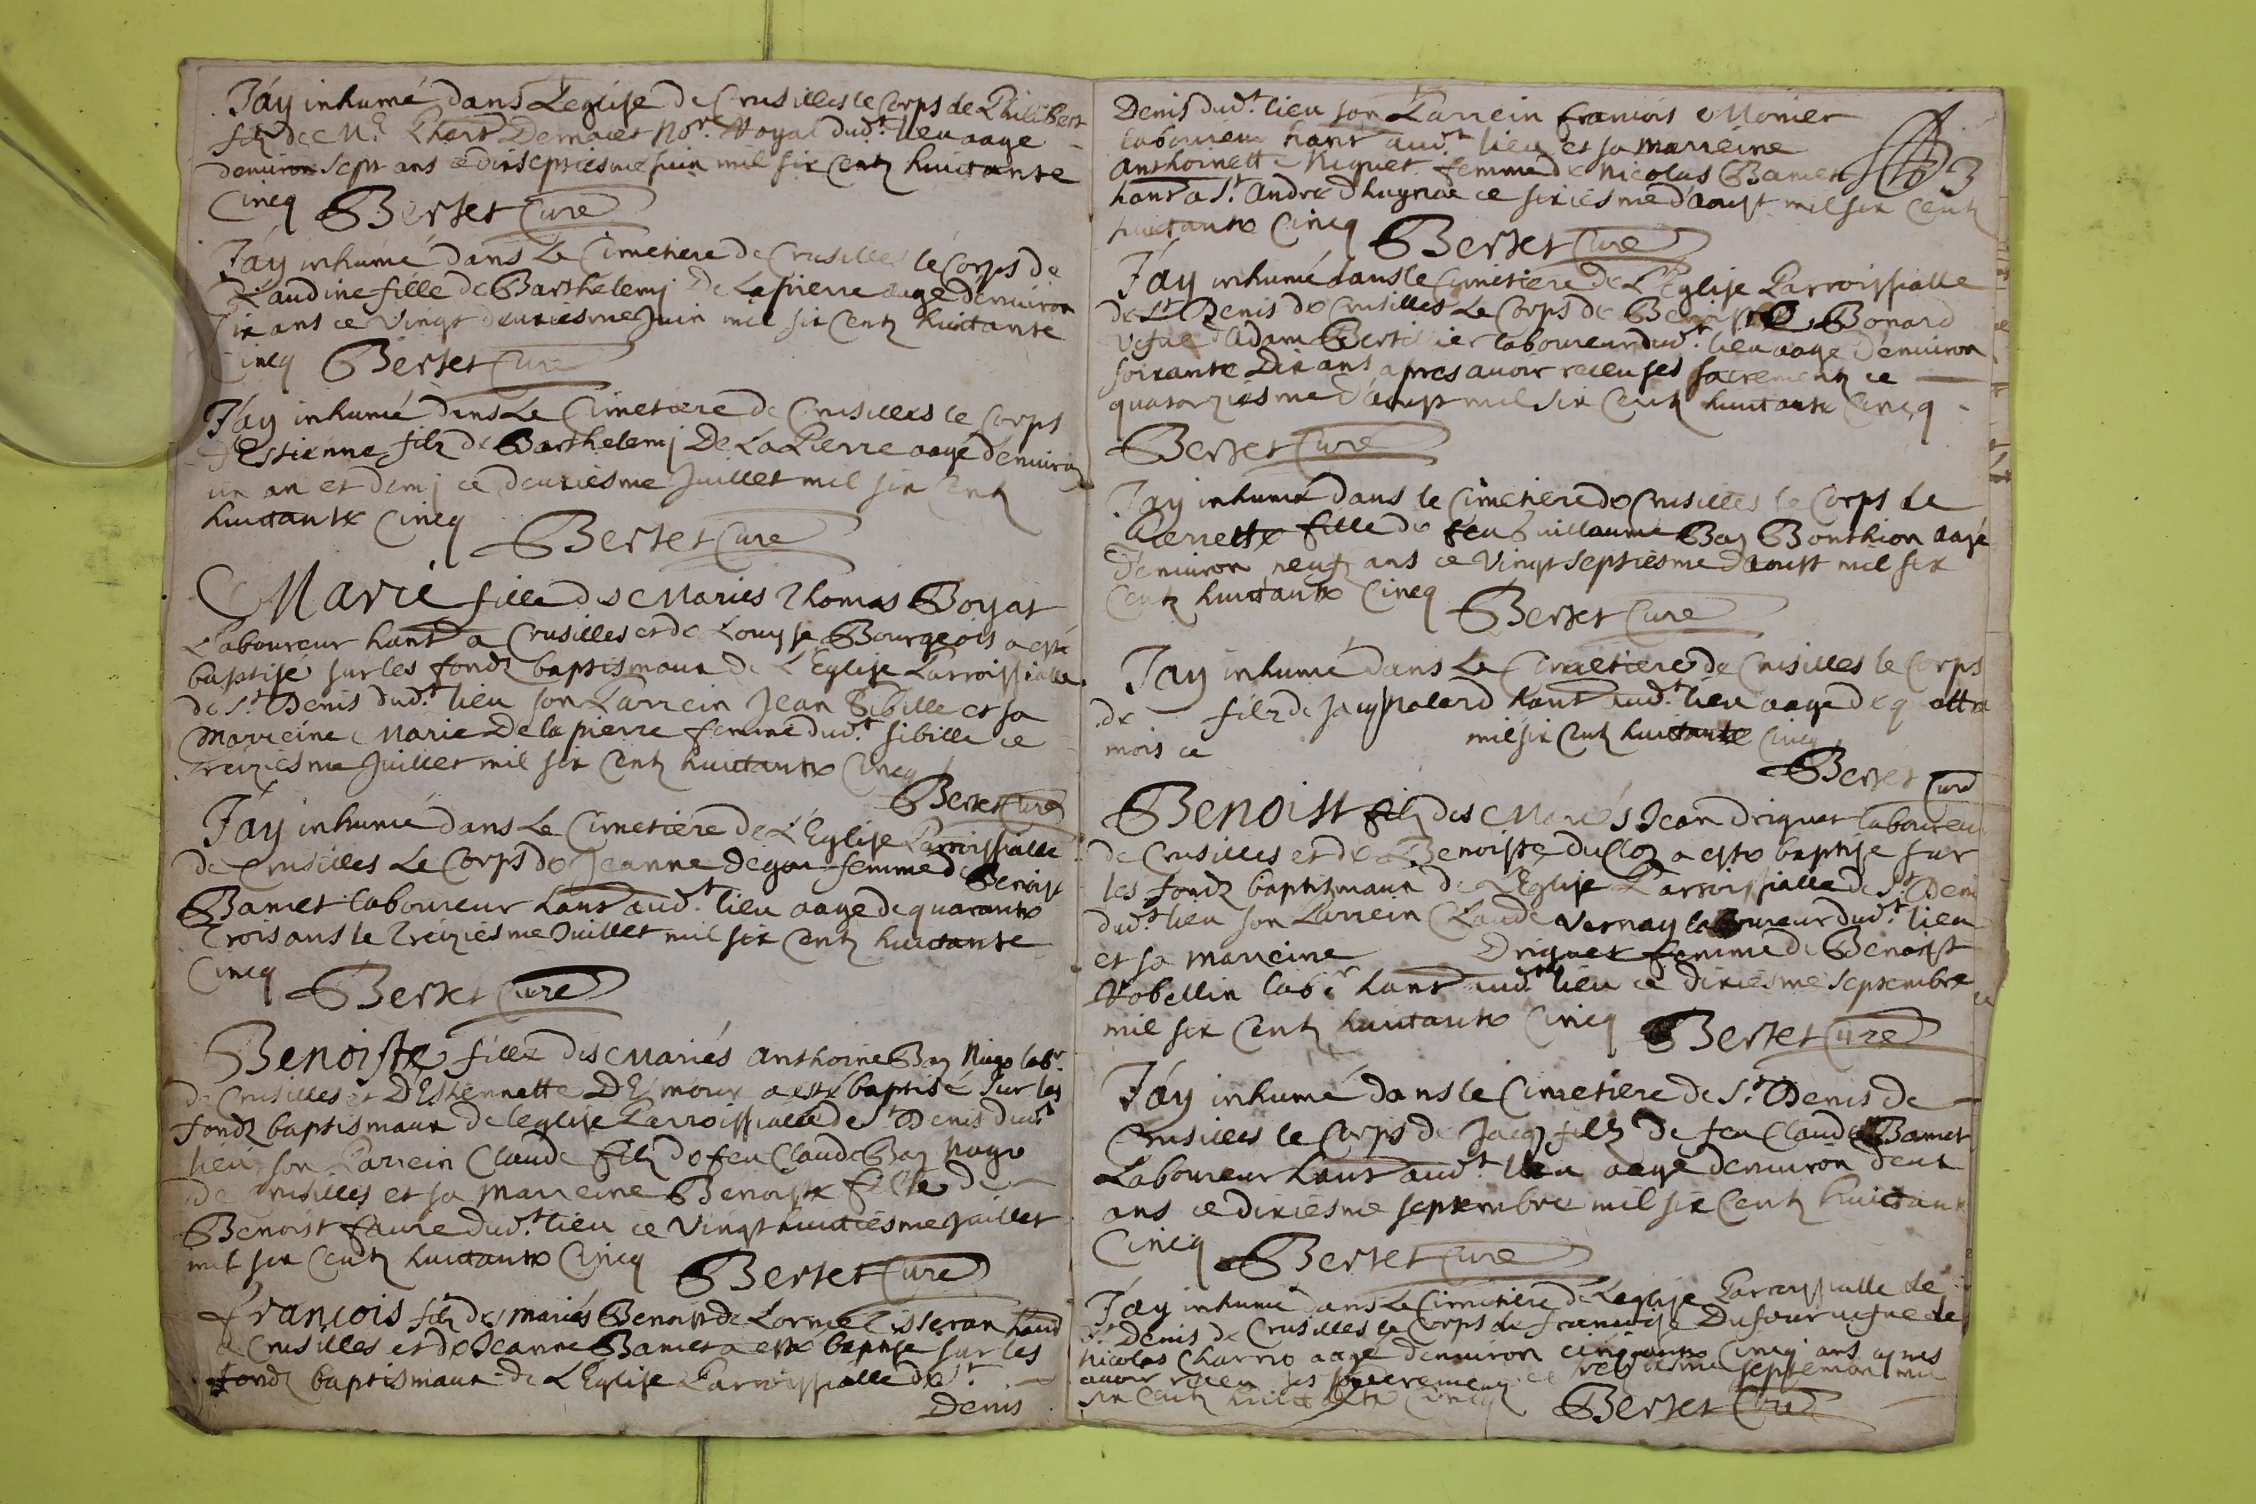 Jáy inhumé dans L'eglise de Crusilles le Corps de Philibert
filz de Me Phert Demaiet Nore. Royal dudt. lieu aage
denviron sept ans ce dixseptiesme juin mil six centz huictante
Cincq Berset Curé
Jáy inhumé dans Le Cimetiere de Crusilles le Corps de
Claudine fille de Barthelemj De Lapierre aagé denviron
six ans ce vingt deuxiesme Juin mil six Centz huictante
Cincq Berset Curé
Jáy inhumé dans Le Cimetiere de Crusilles le Corps
d'Estienne filz de Barthelemj De La Pierre aagé denviron
un an et demj ce deuxiesme Juillet mil six Centz
huictante Cincq Berset Curé
Marie fille des Mariés Thomas Boyat
Laboureur hant a Crusilles et de Louyse Bourgeois a esté
baptisé sur les fondz baptismaux de L'Eglise Parroissialle
de St. Denis dudt. lieu son Parrein Jean Sibille et sa
Marreine Marie Delapierre femme dudt. sibille ce
treiziesme Juillet mil six Centz huictante Cincq
Berset Curé
Jáy inhumé dans Le Cimetiére de L'Eglise Parroissialle
de Crusilles Le Corps de Jeanne Degou femme de Benoist
Bamet laboureur hant audt. lieu aage de quarante
Trois ans le Treiziesme Juillet mil six Centz huictante
Cincq Berset Curé
Benoiste fille des Mariés Anthoine Bay labr.
de Crusilles et D'Esthennette a esté baptisé sur les
fondz baptismaux de leglise Parroissialle de St Denis dudt
lieu son Parrein Claude filz de feu Claude Bay
de Crusilles et sa Marreine Benoiste fille de
Benoist faure dudt. lieu ce vingt huictiesme Juillet
mil six Centz huictante Cincq Berset Curé
françois filz des mariés Benoist de Lorme Tisseran hant
a Crusilles et de Jeanne Bamet a esté baptisé sur les
fondz baptismaux de L'Eglise Parroissialle de St.
Denis
Denis dudt. lieu son Parrein francois Monier
laboureur hant audt. lieu et sa marreine
Anthoinette Riquet femme de Nicolas Bamet 3
hant a St. André d'huyriac ce sixiesme d'aoust mil six Centz
huictante Cincq Berset Curé
Jáy inhumé dans le Cimetiere de L'Eglise Parroissialle
de St Denis de Crusilles Le Corps de Benoiste Bonard
vefue d'Adam laboureur dudt. lieu aage denviron
soixante Dix ans apres avoir receu ses sacrementz ce
quatorziesme d'aoust mil six Centz huictante Cincq
Berset Curé
Jay inhumé dans le Cimetiere de Crusilles le Corps de
Pierrette fille de feu Guillaume Bay Bonthion aagé
d'environ neufz ans ce vingt septiesme d'aoust mil six
Centz huictante Cincq Berset Curé
Jay inhumé dans Le Cimetiere de Crusilles le Corps
de filz de Jacq Nalard hant audt. lieu aage de q attre
mois ce mil six Centz huictante Cincq
Berset Curé
Benoist filz des Mariés Jean Driguet laboureur
de Crusilles et de Benoiste Du Cloz a esté baptise sur
les fondz baptismaux de L'Eglise Parroissialle de St Denis
dudt. lieu son Parrein Claude Vernay laboureur dudt. lieu
et sa marreine Driguet femme de Benoist
Robellin labr. hant audt. lieu ce dixiesme septembre
mil six Centz huictante Cincq Berset Curé
Jáy inhumé dans le Cimetiere de St. Denis de
Crusilles le Corps de Jacq filz de feu Claude Bamet
Laboureur hant audt. lieu aagé denviron deux
ans ce dixiesme septembre mil six Centz huictante
Cincq Berset Curé
Jáy inhumé dans Le Cimetiere de L'eglise Parroissialle de
St Denis de Crusilles le Corps de francoise Dufour vefue de
Nicolas Charno aagé denviron cinquante Cincq ans apres
avoir receu ses sacrementz ce septembre mil
six Centz huictante Cincq Berset Curé